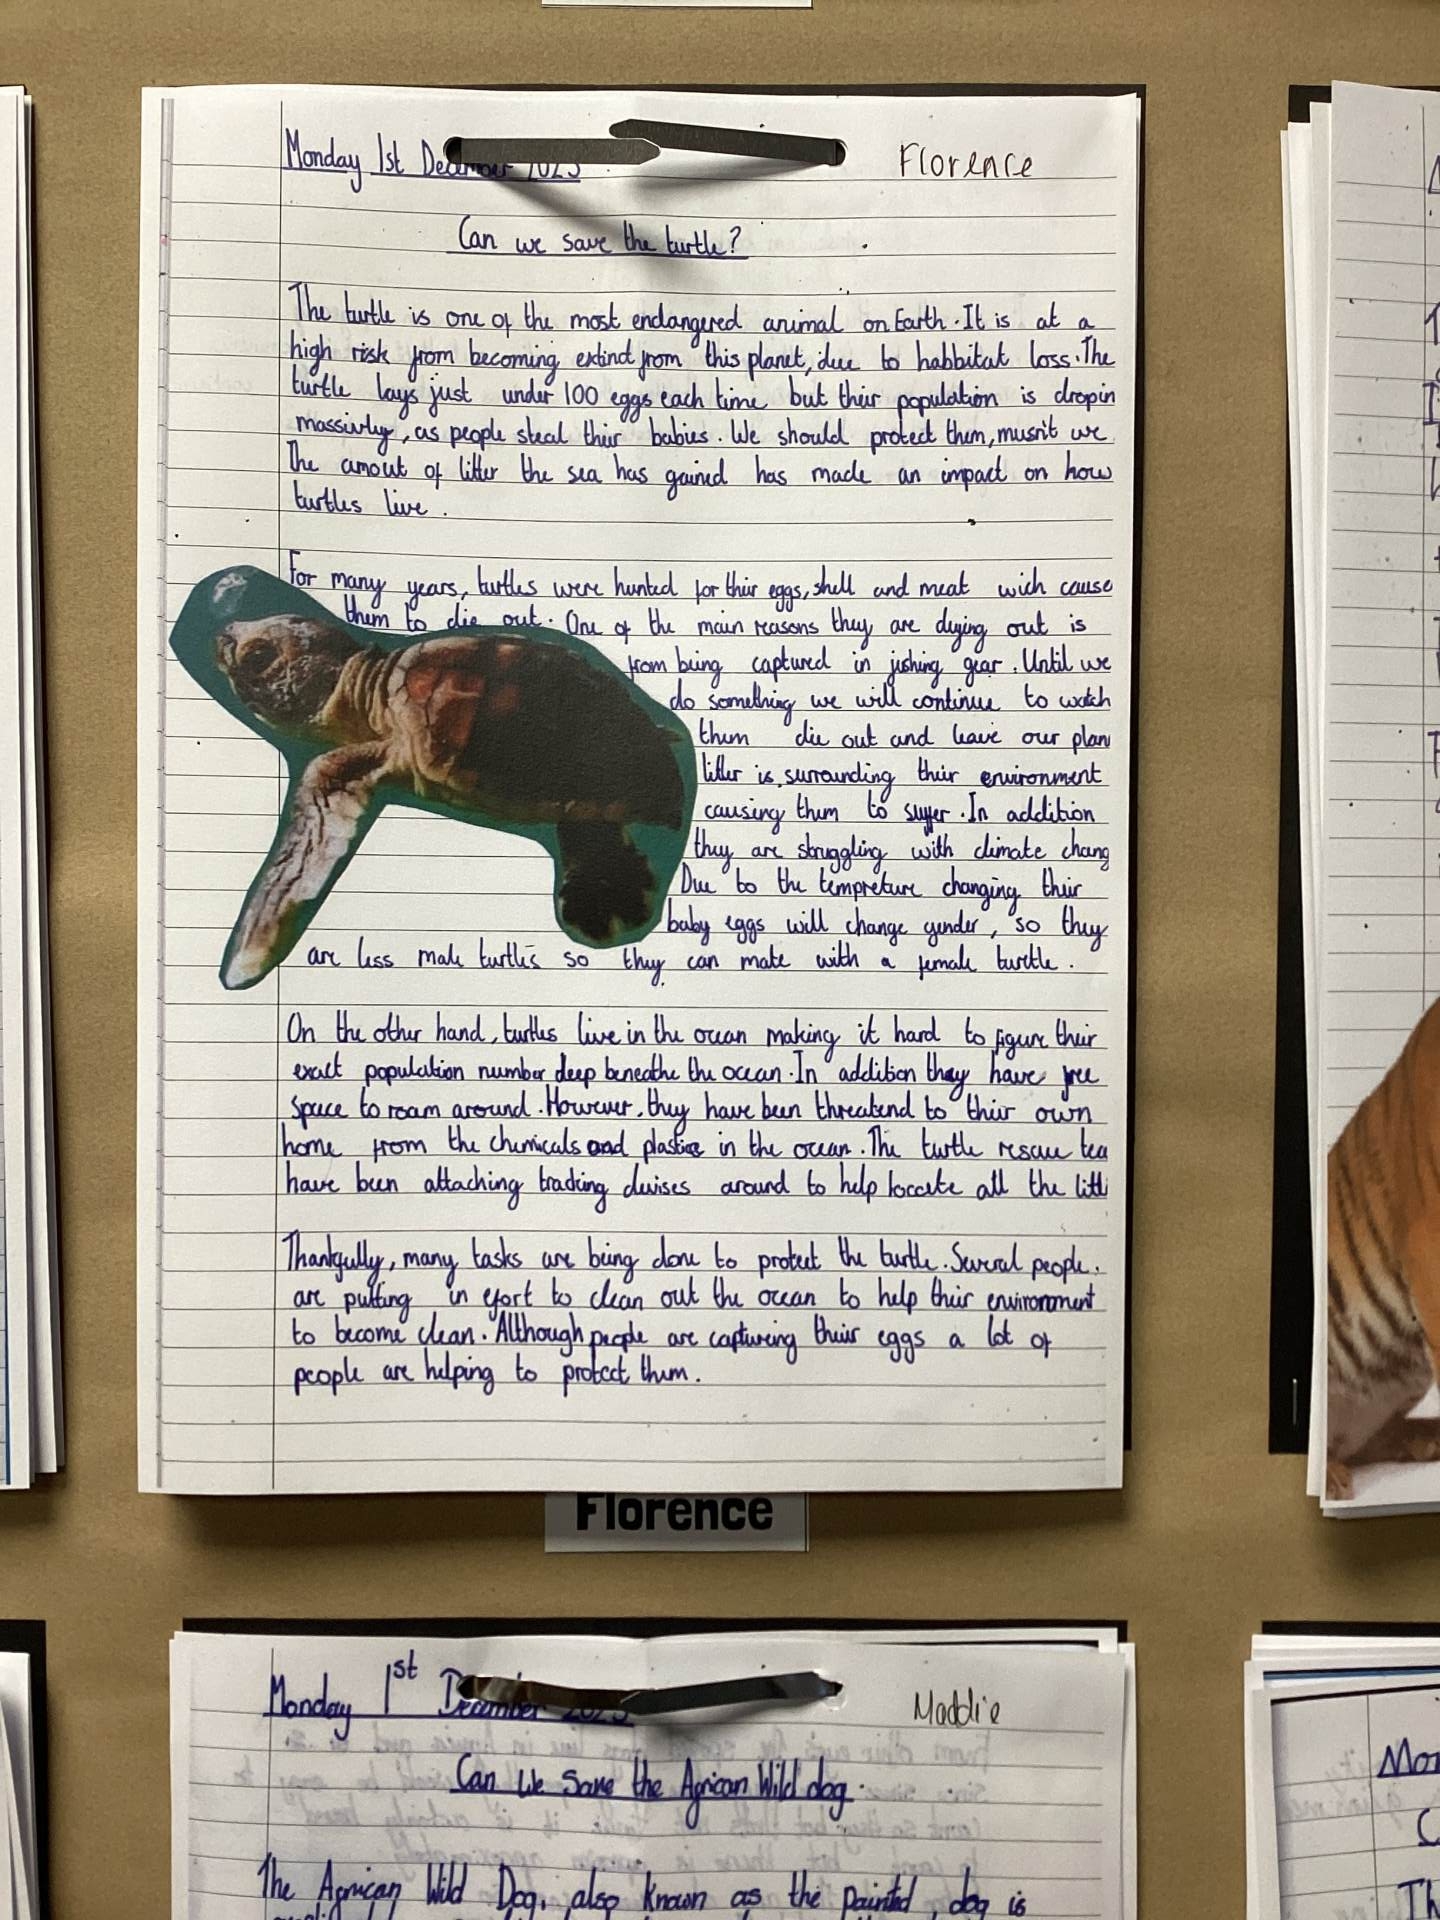 Monday 1st December 2025
Florence
Can we save the turtle?
The turtle is one of the most endangered animal on Earth. It is at a
high risk from becoming extinct from this planet, due to habbitat loss. The
turtle lays just under 100 eggs each time but their population is dropin
massivly, as people steal their babies. We should protect them, musn't we
The amout of litter the sea has gained has made an impact on how
turtles live.
For many years, turtles were hunted for their eggs, shell and meat wich cause
them to die out. One of the main reasons they are dying out is
from being captured in fishing gear. Until we
do something we will continue to watch
them die out and leave our plan
litter is surrounding their environment
causing them to suffer. In addition
they are struggling with climate chang
Due to the tempreture changing their
baby eggs will change gender, so they
are less male turtles so they can mate with a female turtle.
On the other hand, turtles live in the ocean making it hard to figure their
exact population number deep beneathe the ocean. In addition they have free
space to roam around. However, they have been threatend to their own
home from the chemicals and plastic in the ocean. The turtle rescue tea
have been attaching tracking devises around to help loccate all the littl
Thankfully, many tasks are being done to protect the turtle. Several people.
are putting in efort to clean out the ocean to help their environment
to become clean. Although people are capturing their eggs a lot of
people are helping to protect them.
Florence
Monday 1st December 2025
Maddie
Can We Save the African Wild dog.
The African Wild Dog, also known as the painted dog is
Mon
C
Th